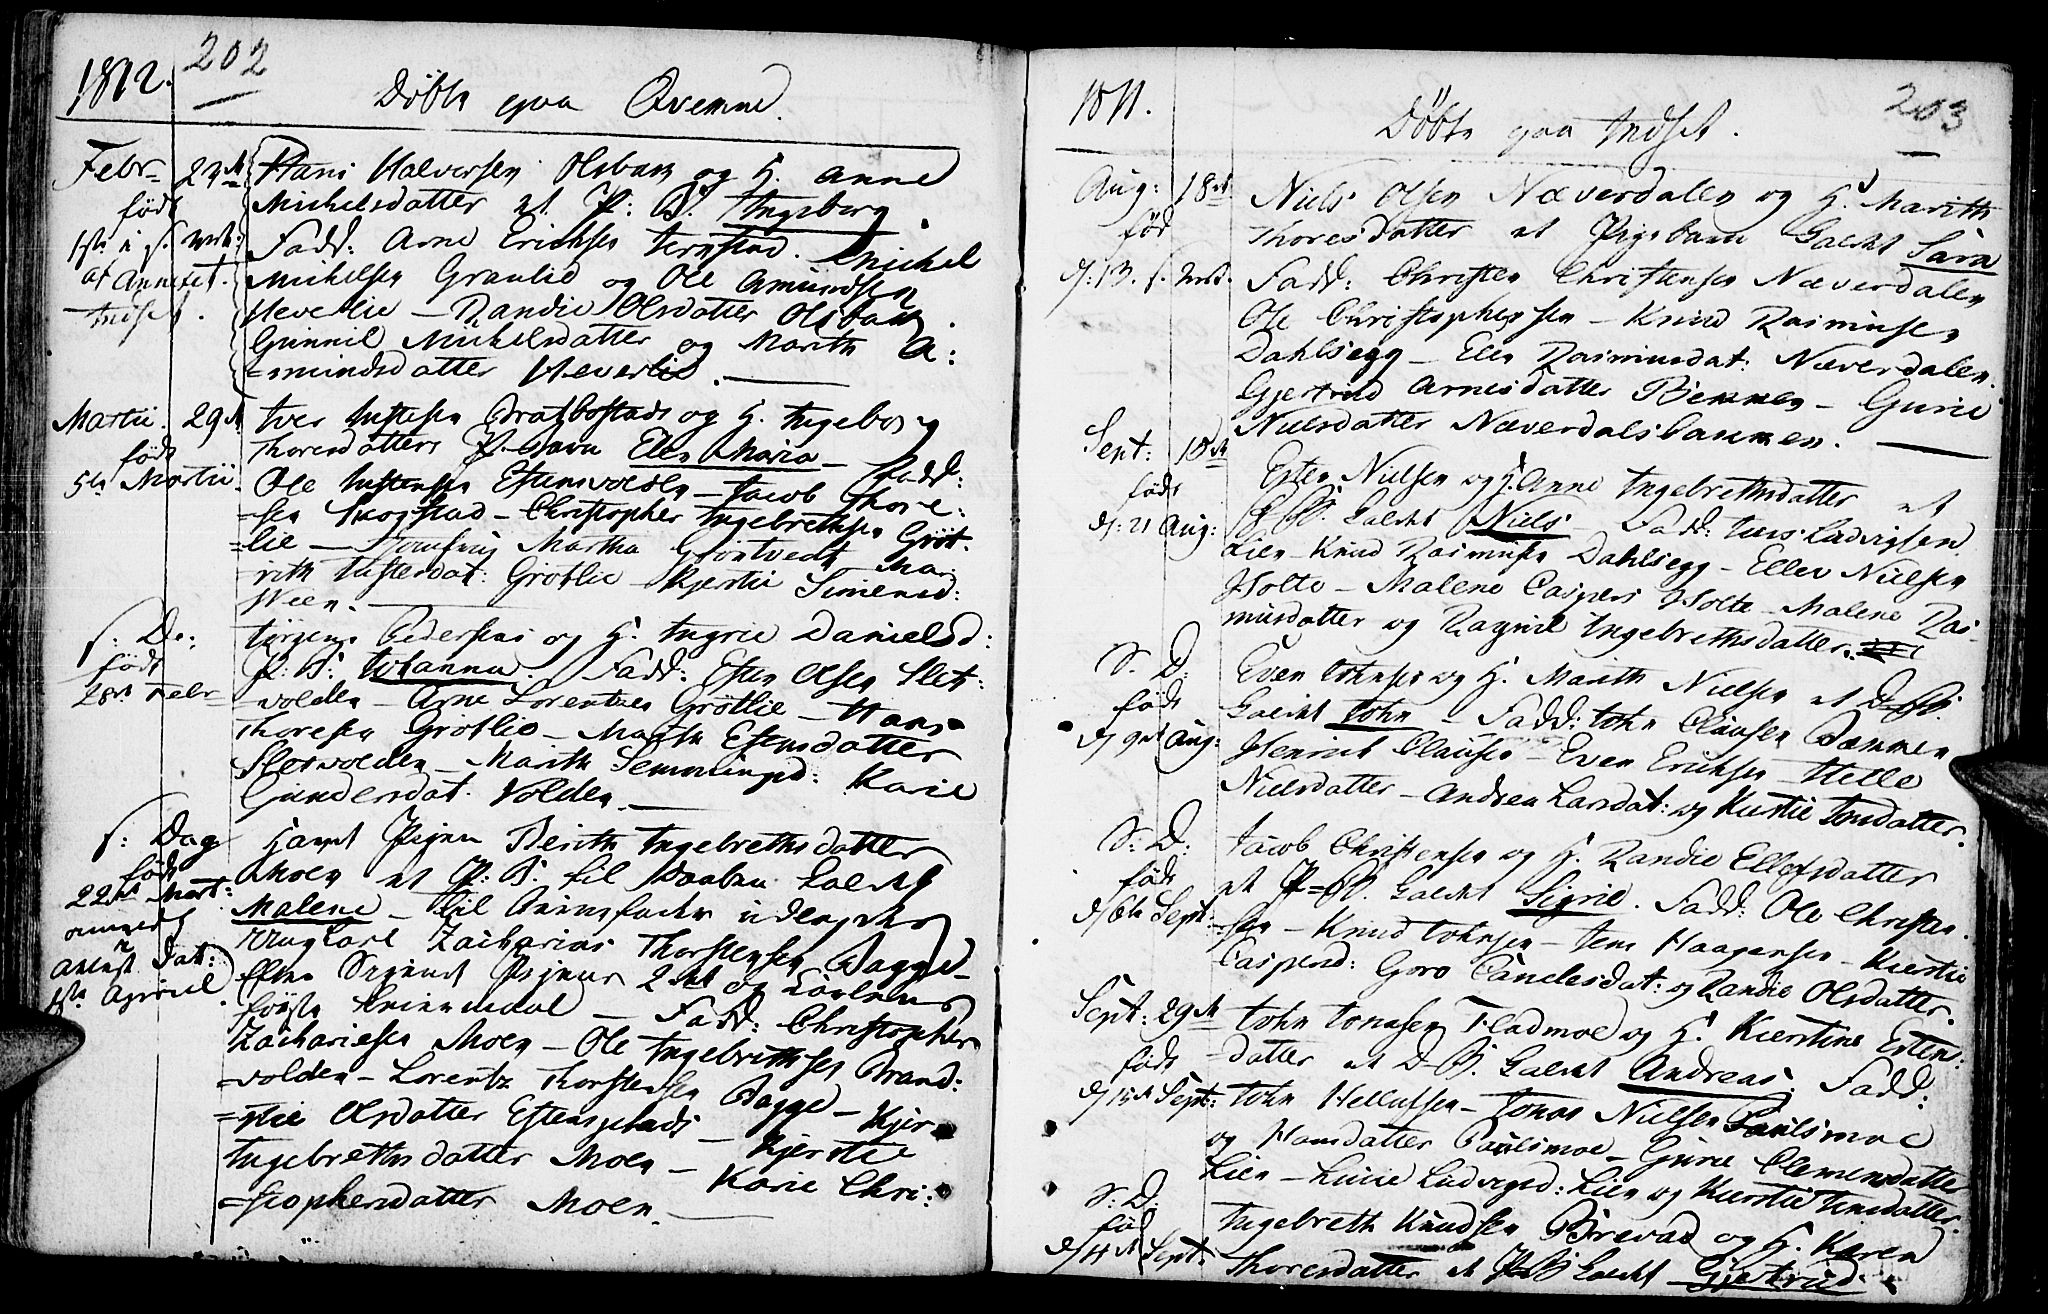 1812. 202
Døbte paa Qvenne.
Febr– 23de Hans Halvorsen Olsbach og H. Anne
født Michelsdatter et P: B. Ingeborg.
1ste i s. Mt: Fadd: Arne Erichsen Ternstad. Michel
at Annexet Michelsen Graulid og Ole Amundsen
Indset. Heverlie – Randie Olsdatter Olsbach.
Gunnil Michelsdatter og Marith A:
=mundsdatter Heverlie.
Martii. 29de Iver Estensen Brattbostads og H. Ingeborg
født Thoresdatters P. barn Elen Maria – Fadd:
5te Martii Ole Estensen Estensvolden – Jacob Thore:
=sen Skogstad – Christopher Ingebrethsen Gröt:
=lie – Jomfru Martha Grøntvedt Ma:
rith Estensdat: Grötlie – Kjerstie Simensd:
Ween.
s: D: Jörgen Pedersens og H. Ingrie Danielsd:
født P: B: Johanna. Fadd: Esten Olsen Slet:
28de Febr– =volden – Arne Lorentzen Grötlie – Hans
Thoresen Grötlie – Marith Estensdatter
Sletvolden – Marith Semmingsd: Karie
Gundersdat. Volden.
s: Dag Pigen Berith Ingebrethsdatter
født Moen et P: B. til Daaben kaldet
22de Mart: Malene – til Barnefader udlagdes
Ungkarl Zacharias Thorstensen Bagge –
1ste Apriil. Pigens 2det og
første Leiermaal – Fadd: Christopher
Zachariesen Moen – Ole Ingebrethsen Brand:
=volden – Lorentz Thorstensen Bagge – Kjer
=stie Olsdatter Estensplads – Kjerstie
Ingebrethsdatter Moen – Karie Chri:
=stophersdatter Moen.
1811. 203
Døbte paa Indset.
Aug: 18de Niels Olsen Næverdalen og H. Marith
fød Thoresdatter et Pigebarn kaldt Sara
d: 13. s. Mt. Fadd: Christen Christensen Næverdalen
Ole Christophersen – Knud Rasmusen
Dahlsegg – Elen Rasmusdat: Næverdalen.
Gjertrud Arnesdatter Bremmen – Gurie
Nielsdatter Næverdalsbakmen.
Sept: 10de Esten Nielsen og H. Anne Ingebrethsdatter et
født D. B. kaldt Niels – Fadd: Iver Ladvigsen
d: 21 Aug: Lien – Knud Rasmusen Dahlsegg – Ellev Nielsen
Holte – Malene Caspers Holte – Malene Ras–
musdatter og Ragnil Ingebrethsdatter.
S. D: Even Johnsen og H. Marith Nielsen et D–B.
født kaldt John – Fadd: John Clausen Bæmmen
d/9de Aug: Henrik Clausen – Even Eriksen – Helle
Nielsdatter – Andrea Larsdat: og Kirstie Jonsdatter.
S: D: Jacob Christensen og H. Randie Ellefsdatter
født et P=B. kaldt Sigrie. Fadd: Ole Christen.
d/6te Sept: =sen – Knud Johnsen – Jens Haagensen – Kirstie
Caspersd: Goro Danielsdat: og Randie Olsdatter.
Sept: 29de John Jonasen Fladmoe og H. Kierstine Esten:
født –datter et D–B. kaldt Andreas. Fadd:
d/15de Sept: John Hellufsen – Jonas Nielsen Paulsmoe
og Hansdatter Paulsmoe – Gurie Clemensdatter
Lien – Lucie Ladvigsd: Lien og Kierstie Jensdatter.
S: D: Ingebreth Knudsen Brevad og H. Karen
fød Thoresdatter et P–B kaldt Gjertrud.
d/4de Sept: